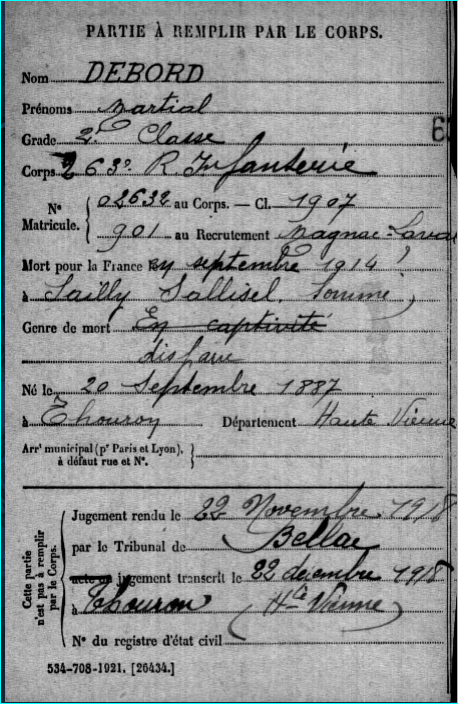 PARTIE À REMPLIR PAR LE CORPS.
Nom DEBORD
Prénoms Martial
Grade 2e Classe
Corps 263e R. Infanterie
N° Matricule. { 02632 au Corps. — Cl. 1907
901 au Recrutement Magnac-Laval
Mort pour la France le septembre 1914
à Sailly Sallisel. Somme
Genre de mort En captivité
disparu
Né le 20 Septembre 1887
à Thouron Département Haute Vienne
Arrt municipal (pr Paris et Lyon),
à défaut rue et N°.
Cette partie n'est pas à remplir par le Corps.
Jugement rendu le 22 Novembre 1918
par le Tribunal de Bellac
acte ou jugement transcrit le 22 décembre 1918
à Thouron (Hte Vienne)
N° du registre d'état civil
534-708-1921. [26434.]